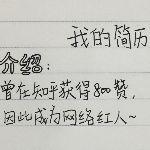 我的简历
介绍：
曾在知乎获得800赞，
因此成为网络红人~